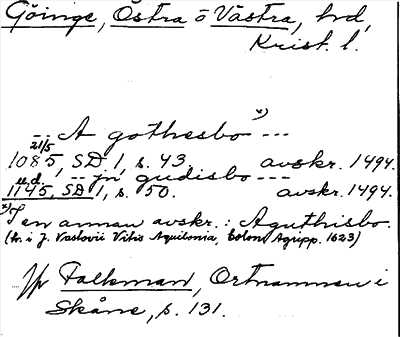 Göinge, Östra o Västra, hrd,
Krist. l.
-- A gothesbo x) ---
21/5
1085, SD 1, s. 43. avskr. 1494.
-- jn gudisbo ---
u.d.
1145, SD 1, s. 50. avskr. 1494.
x) I en annan avskr.: Aguthisbo.
(tr. i J. Vastovii Vitis Aquilonia, Colon. Agripp. 1623)
Jfr Falkman, Ortnamnen i
Skåne, s. 131.